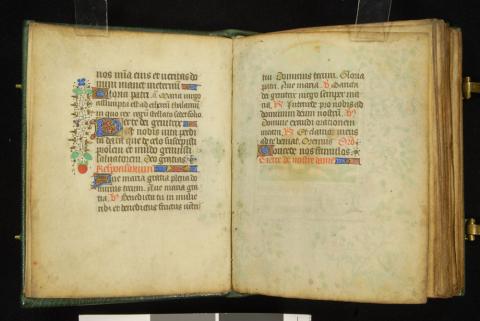 nos mīa eius et ueritas do
mini manet ineternū
Gloria patri. A Maria uirgo
assumpta est ad ethereū thalamū
in quo rex regū stellato sedet solio.
Dei genitrix
uirgo
dum
prolem et mundo genuisti
saluatorem Deo gratias
Responsorium
Aue maria gratia plena do
minus tecum. Aue maria gra
tia. V Benedicta tu in mulie
ribȝ et benedictus fructus uētri
tui Dominus tecum. Gloria
patri. Aue maria. V Sancta
dei genitrix uirgo semper ma
ria. R Intercede pro nobis ad
dominum deum nostrū. V
Domine exaudi orationem
meam. R Et clamor meus
ad te ueniat. Oremus
Concede nos famulos